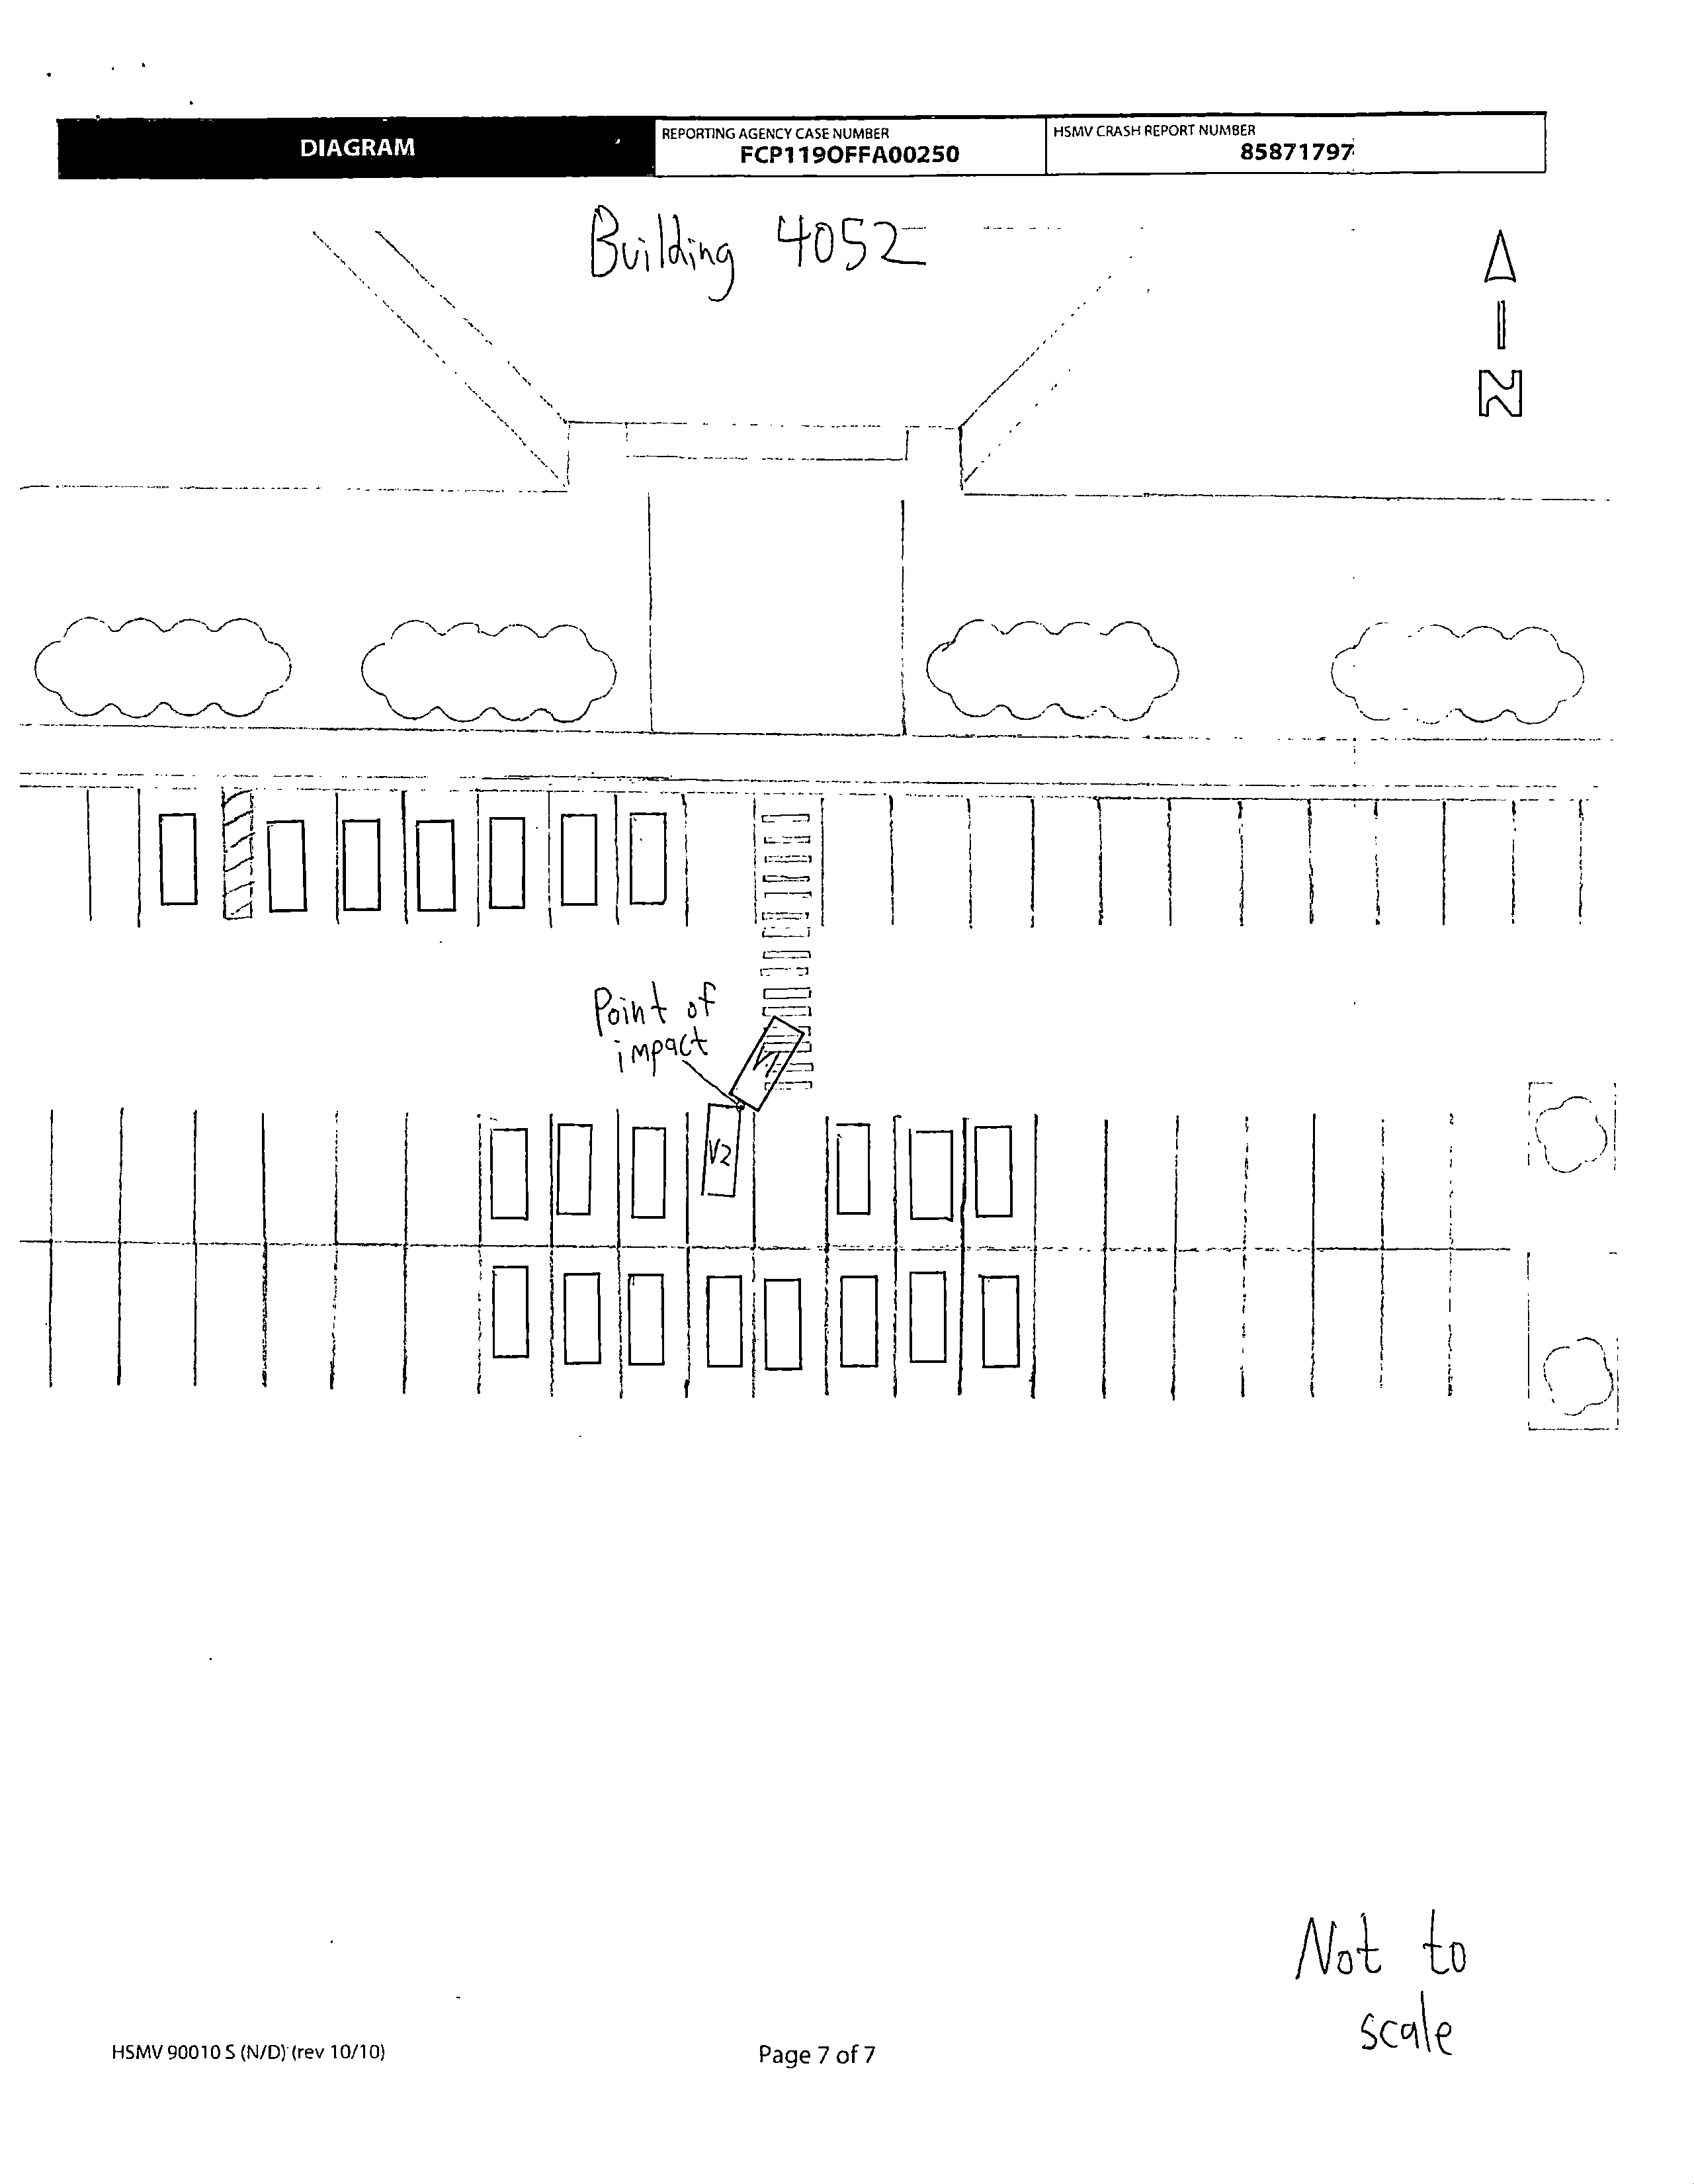 DIAGRAM
REPORTING AGENCY CASE NUMBER
FCP119OFFA00250
HSMV CRASH REPORT NUMBER
85871797
Building 4052
N
Point of
impact
V1
V2
Not to
scale
HSMV 90010 S (N/D) (rev 10/10)
Page 7 of 7